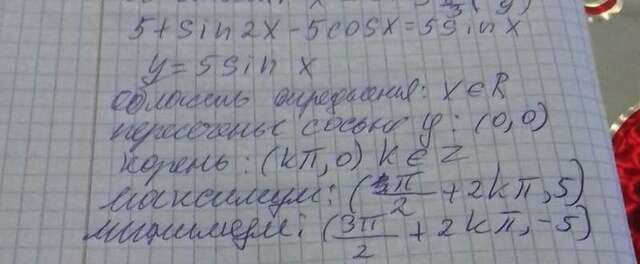 5+sin2x-5cosx=5sinx
y=5sin x
область определения: x∈R
пересеченье с осью y: (0,0)
корень: (kπ,0) k∈Z
максимум: (π/2+2kπ,5)
минимум: (3π/2+2kπ,-5)